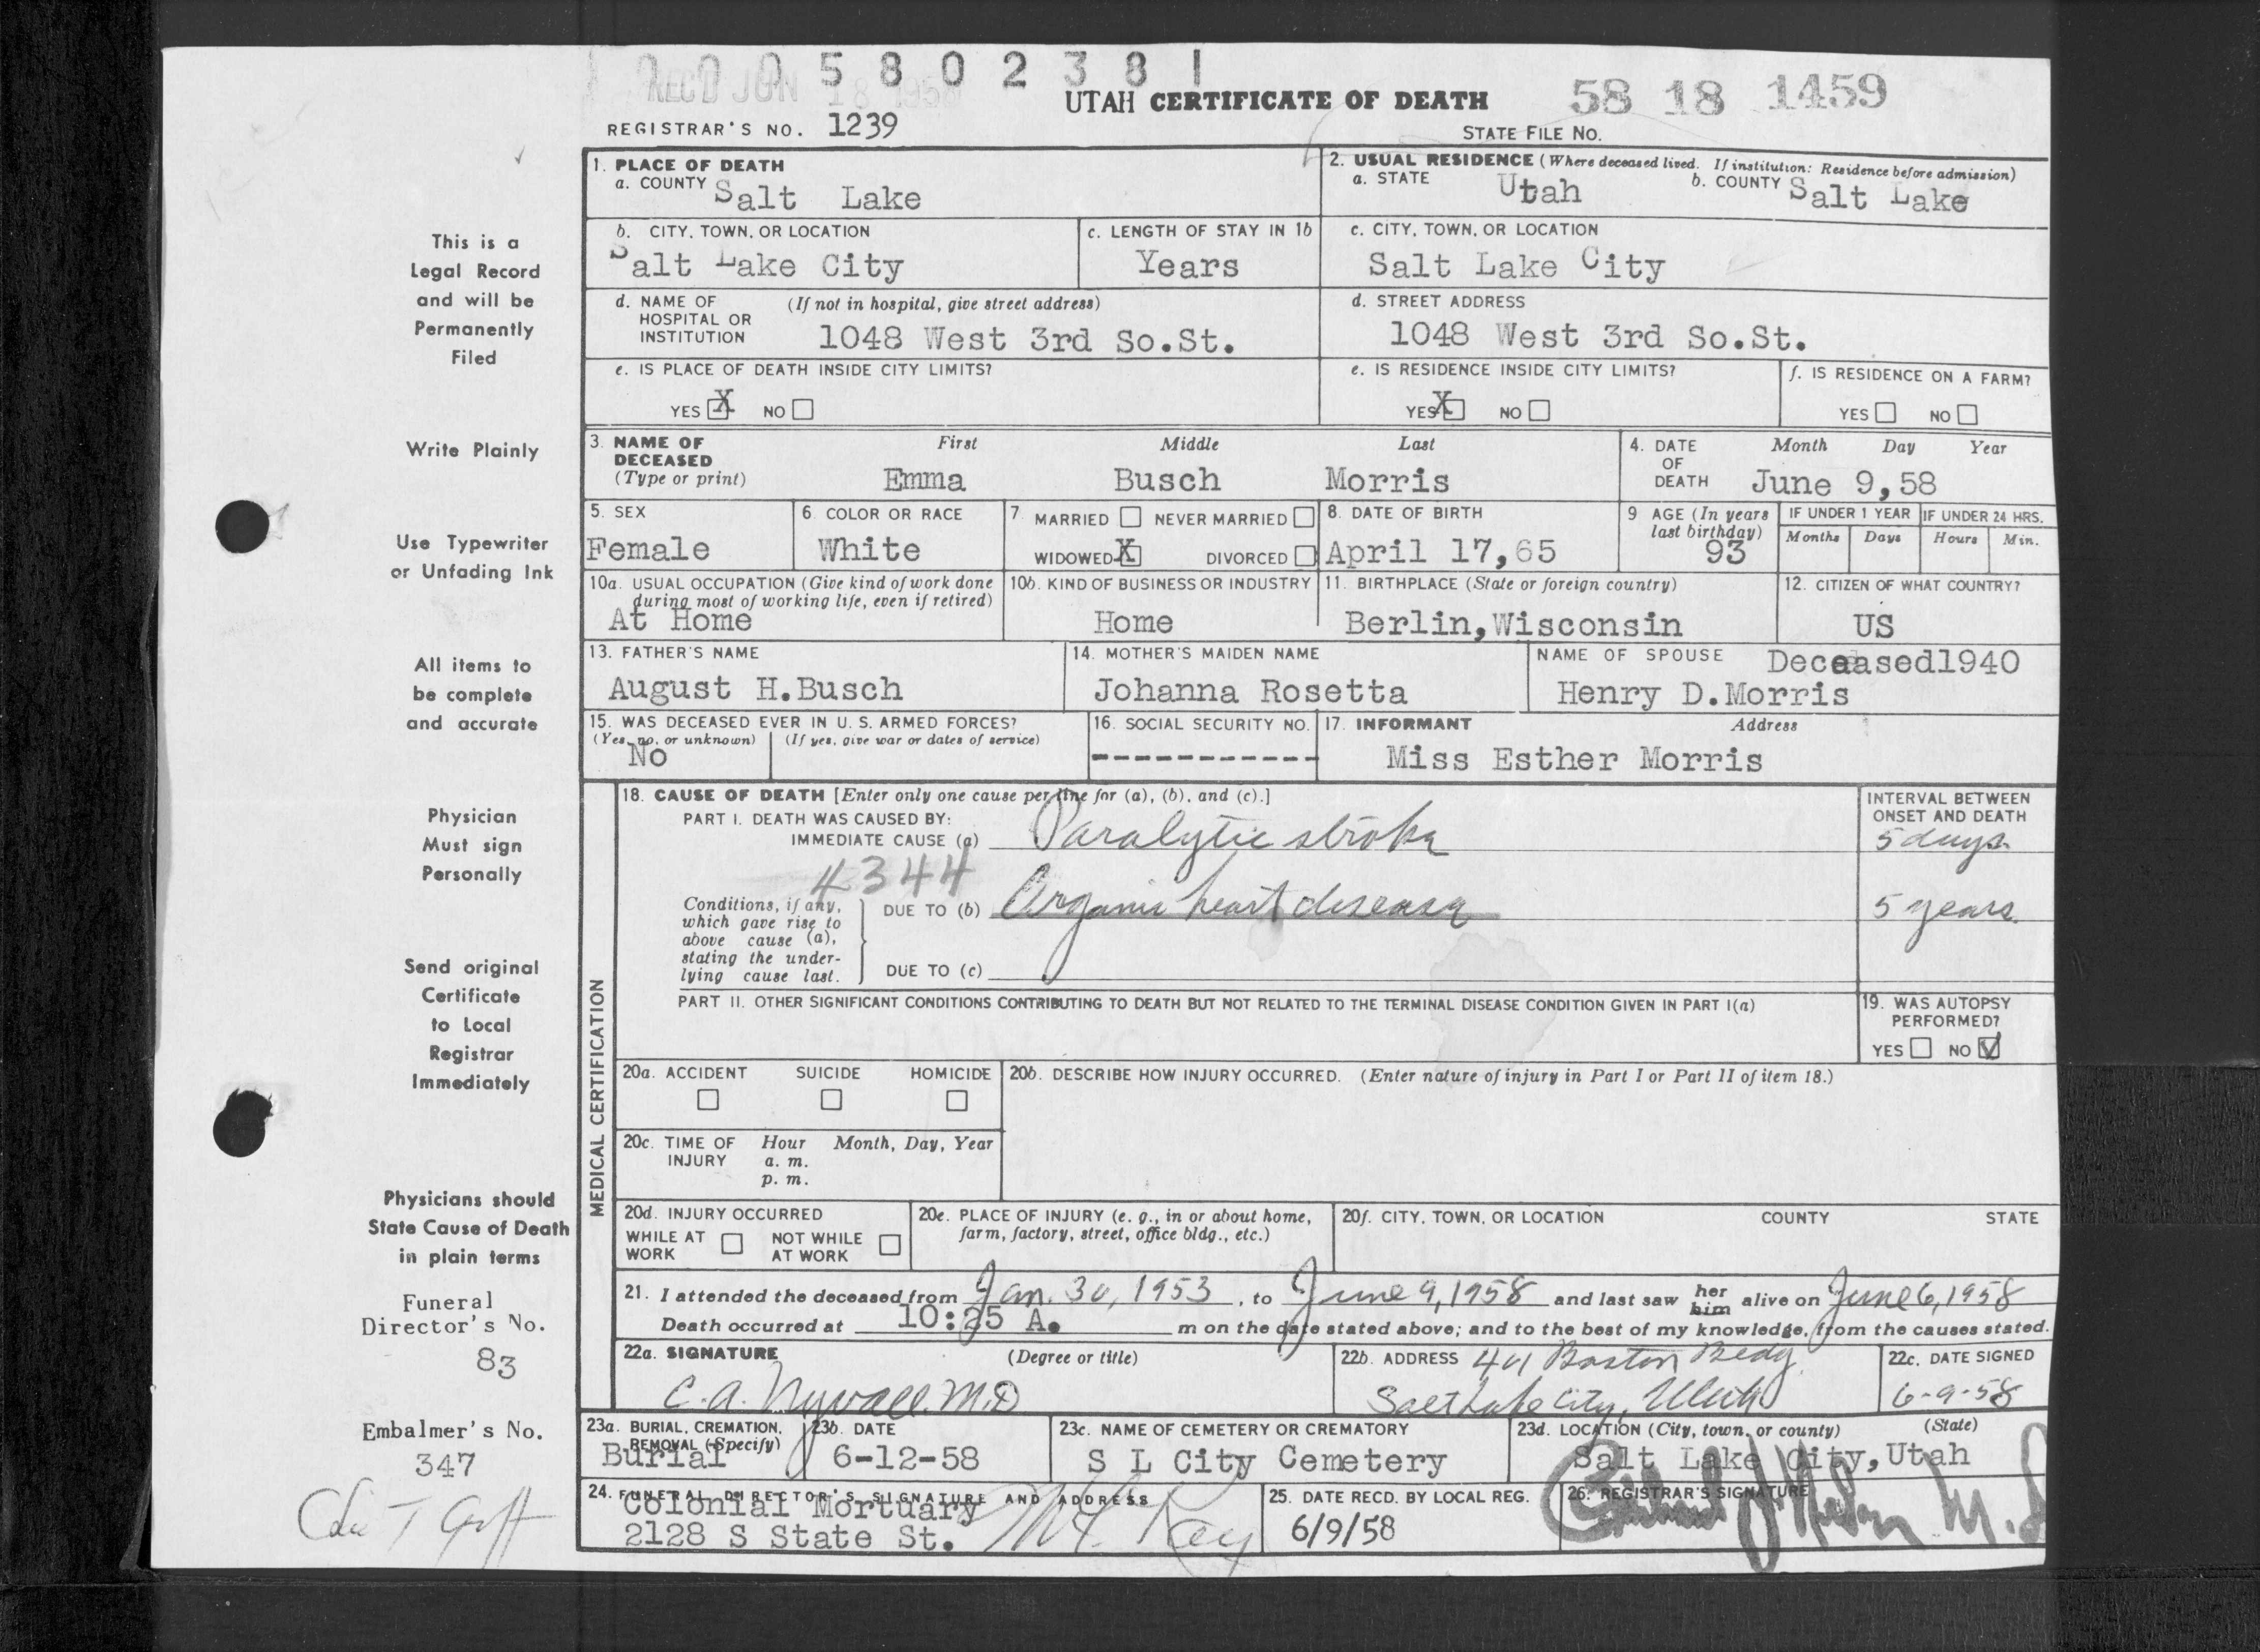 1 0 0 0 5 8 0 2 3 8 1
REC'D JUN 18 1958
UTAH CERTIFICATE OF DEATH
58 18 1459
REGISTRAR'S NO. 1239
STATE FILE NO.
This is a
Legal Record
and will be
Permanently
Filed
Write Plainly
Use Typewriter
or Unfading Ink
All items to
be complete
and accurate
Physician
Must sign
Personally
Send original
Certificate
to Local
Registrar
Immediately
Physicians should
State Cause of Death
in plain terms
Funeral
Director's No.
83
Embalmer's No.
347
1. PLACE OF DEATH
a. COUNTY Salt Lake
2. USUAL RESIDENCE (Where deceased lived. If institution: Residence before admission)
a. STATE Utah b. COUNTY Salt Lake
b. CITY, TOWN, OR LOCATION
Salt Lake City
c. LENGTH OF STAY IN 1b
Years
c. CITY, TOWN, OR LOCATION
Salt Lake City
d. NAME OF (If not in hospital, give street address)
HOSPITAL OR
INSTITUTION 1048 West 3rd So.St.
d. STREET ADDRESS
1048 West 3rd So.St.
e. IS PLACE OF DEATH INSIDE CITY LIMITS?
YES X NO
e. IS RESIDENCE INSIDE CITY LIMITS?
YES X NO
f. IS RESIDENCE ON A FARM?
YES NO
3. NAME OF First Middle Last
DECEASED
(Type or print) Emma Busch Morris
4. DATE Month Day Year
OF
DEATH June 9,58
5. SEX
Female
6. COLOR OR RACE
White
7. MARRIED NEVER MARRIED
WIDOWED X DIVORCED
8. DATE OF BIRTH
April 17,65
9 AGE (In years
last birthday)
93
IF UNDER 1 YEAR
Months Days
IF UNDER 24 HRS.
Hours Min.
10a. USUAL OCCUPATION (Give kind of work done
during most of working life, even if retired)
At Home
10b. KIND OF BUSINESS OR INDUSTRY
Home
11. BIRTHPLACE (State or foreign country)
Berlin,Wisconsin
12. CITIZEN OF WHAT COUNTRY?
US
13. FATHER'S NAME
August H.Busch
14. MOTHER'S MAIDEN NAME
Johanna Rosetta
NAME OF SPOUSE Deceased1940
Henry D.Morris
15. WAS DECEASED EVER IN U. S. ARMED FORCES?
(Yes, no, or unknown) (If yes, give war or dates of service)
No
16. SOCIAL SECURITY NO.
------------
17. INFORMANT Address
Miss Esther Morris
MEDICAL CERTIFICATION
18. CAUSE OF DEATH [Enter only one cause per line for (a), (b), and (c).]
PART I. DEATH WAS CAUSED BY:
IMMEDIATE CAUSE (a) Paralytic stroke
INTERVAL BETWEEN
ONSET AND DEATH
5 days
4344
Conditions, if any,
which gave rise to
above cause (a),
stating the under-
lying cause last.
DUE TO (b) Organic heart disease
5 years
DUE TO (c)
PART II. OTHER SIGNIFICANT CONDITIONS CONTRIBUTING TO DEATH BUT NOT RELATED TO THE TERMINAL DISEASE CONDITION GIVEN IN PART I(a)
19. WAS AUTOPSY
PERFORMED?
YES NO
20a. ACCIDENT SUICIDE HOMICIDE
20b. DESCRIBE HOW INJURY OCCURRED. (Enter nature of injury in Part I or Part II of item 18.)
20c. TIME OF Hour Month, Day, Year
INJURY a. m.
p. m.
20d. INJURY OCCURRED
WHILE AT NOT WHILE
WORK AT WORK
20e. PLACE OF INJURY (e. g., in or about home,
farm, factory, street, office bldg., etc.)
20f. CITY, TOWN, OR LOCATION COUNTY STATE
21. I attended the deceased from Jan. 30, 1953, to June 9, 1958 and last saw her him alive on June 6, 1958
Death occurred at 10:25 A. m on the date stated above; and to the best of my knowledge, from the causes stated.
22a. SIGNATURE (Degree or title)
C.A. Nywall. M.D
22b. ADDRESS 401 Boston Bldg
Salt Lake City, Utah
22c. DATE SIGNED
6-9-58
23a. BURIAL, CREMATION,
REMOVAL (Specify)
Burial
23b. DATE
6-12-58
23c. NAME OF CEMETERY OR CREMATORY
S L City Cemetery
23d. LOCATION (City, town, or county) (State)
Salt Lake City,Utah
24. FUNERAL DIRECTOR'S SIGNATURE AND ADDRESS
Colonial Mortuary
2128 S State St.
25. DATE RECD. BY LOCAL REG.
6/9/58
26. REGISTRAR'S SIGNATURE